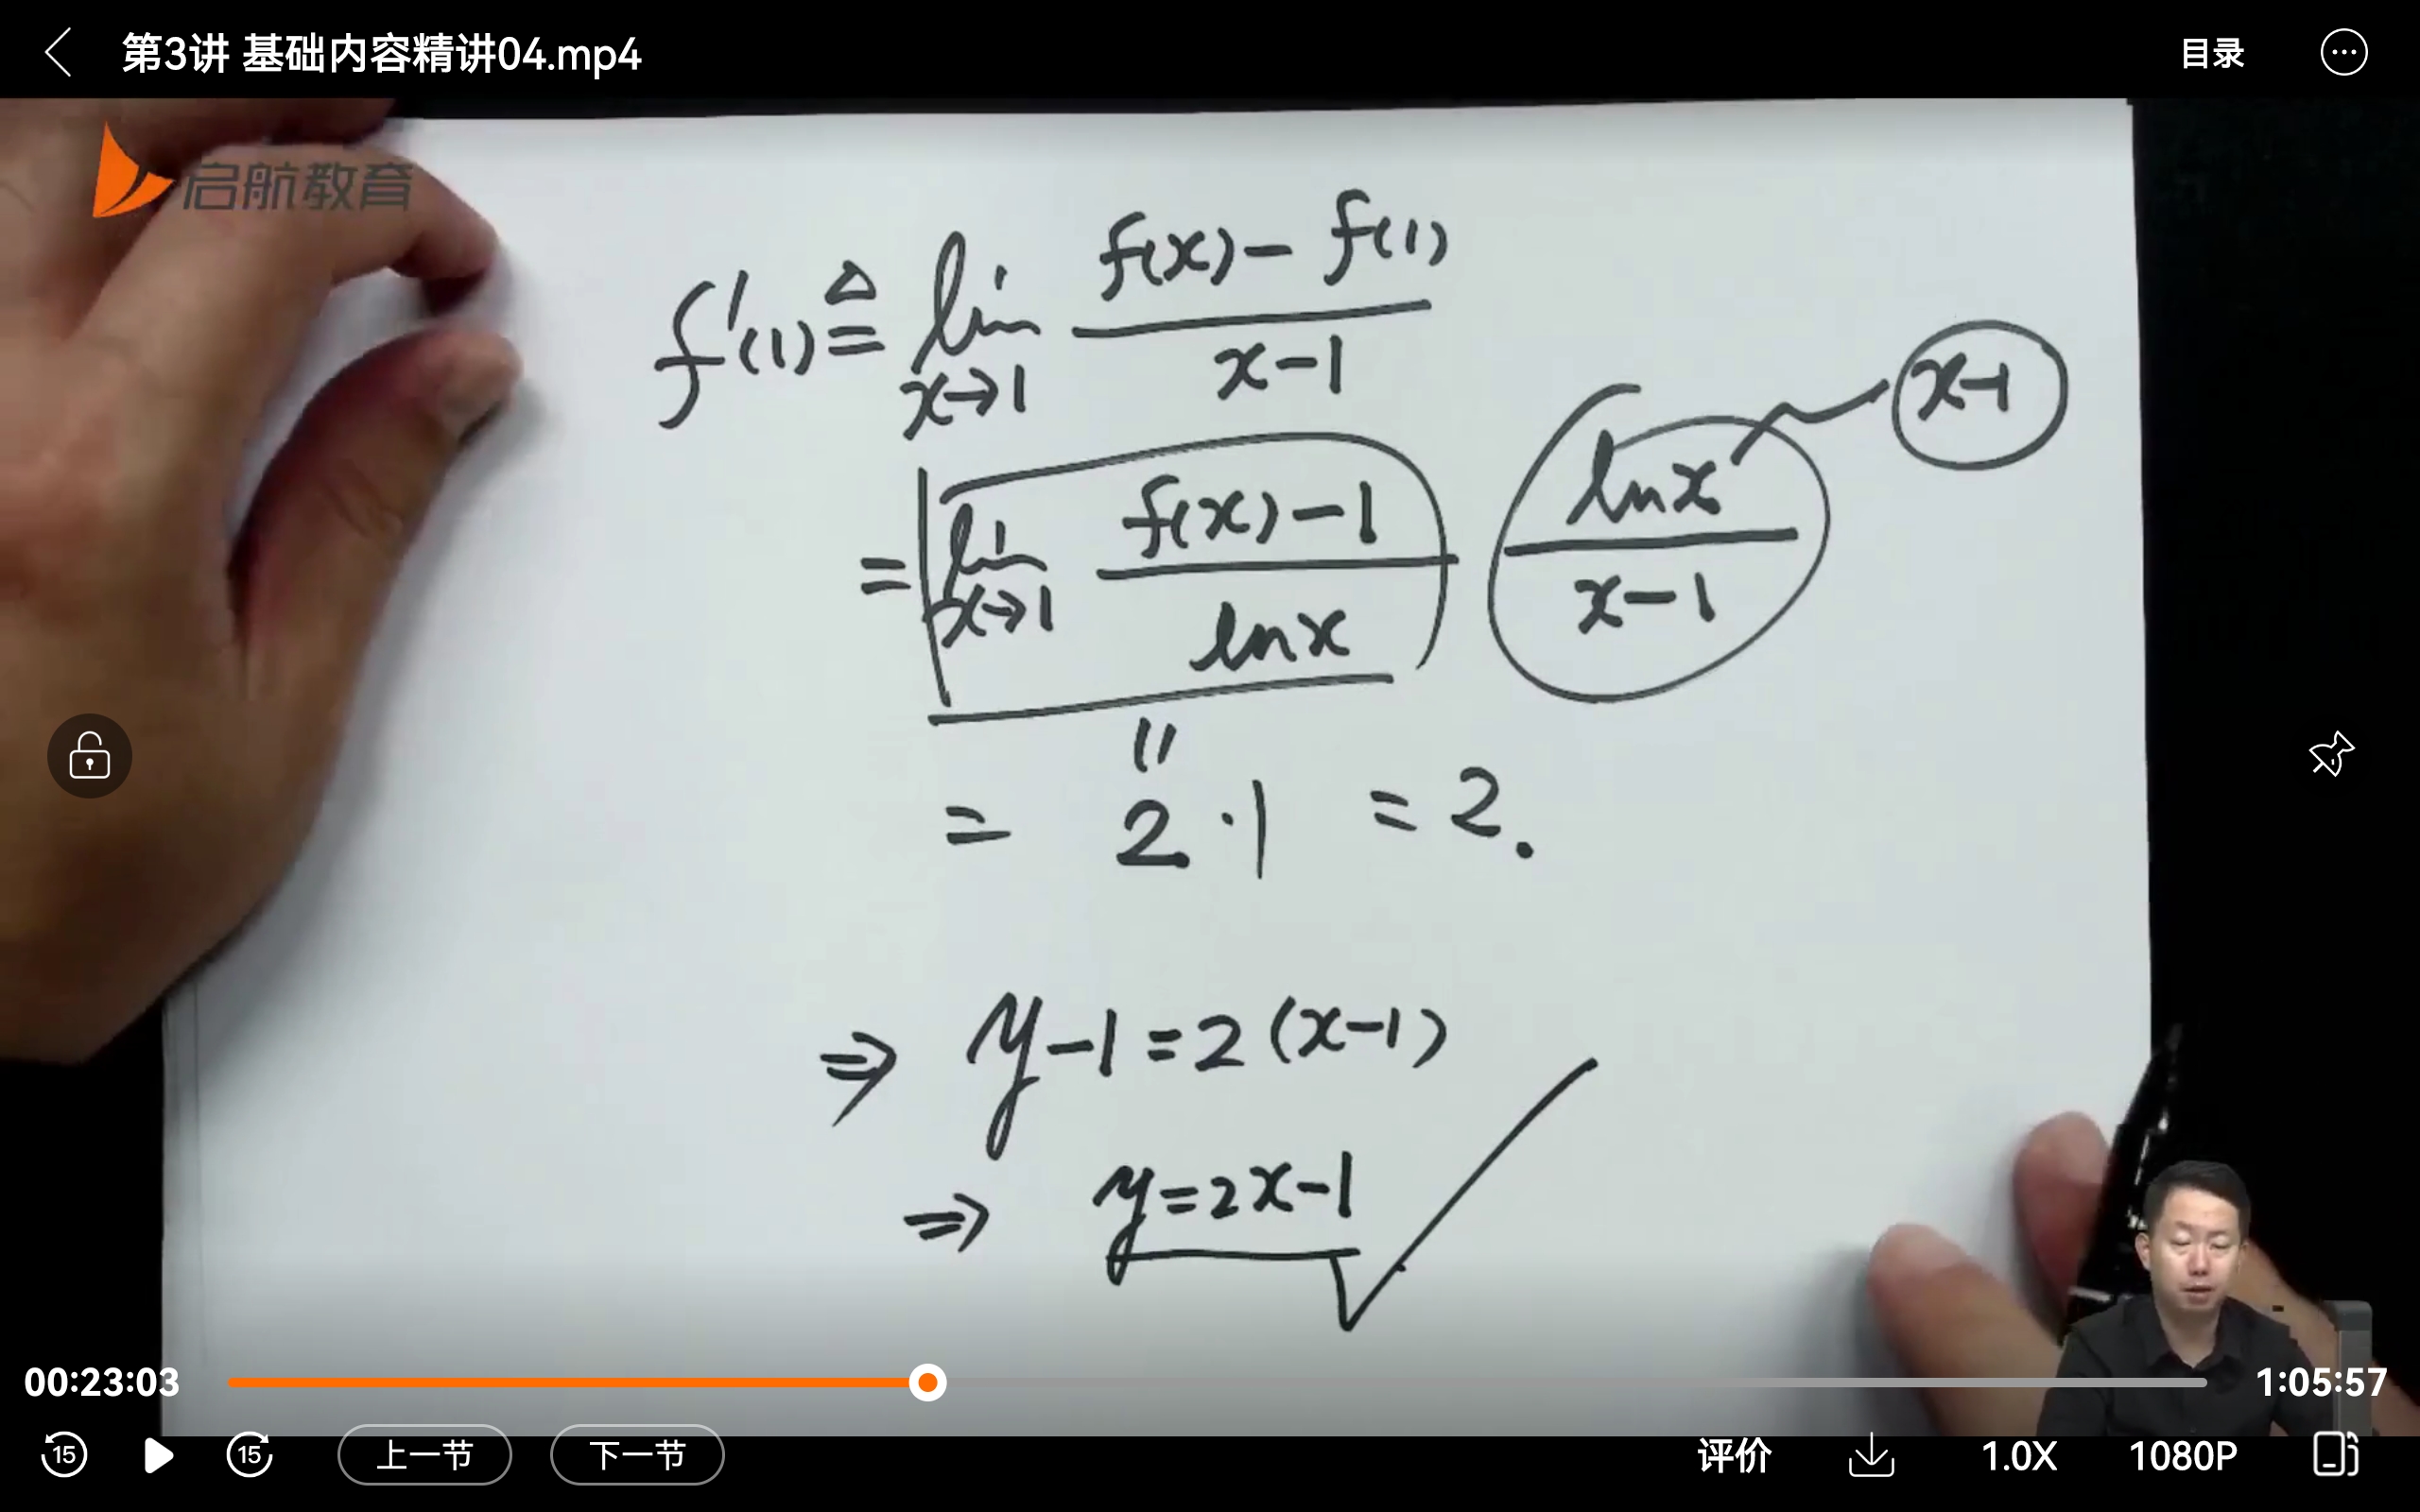 第3讲 基础内容精讲04.mp4
目录
启航教育
f'(1) ≜ lim x→1 f(x)-f(1) / x-1
= lim x→1 f(x)-1 / lnx · lnx / x-1
x-1
= 2·1 = 2.
⇒ y-1=2(x-1)
⇒ y=2x-1
00:23:03
1:05:57
15
15
上一节
下一节
评价
1.0X
1080P